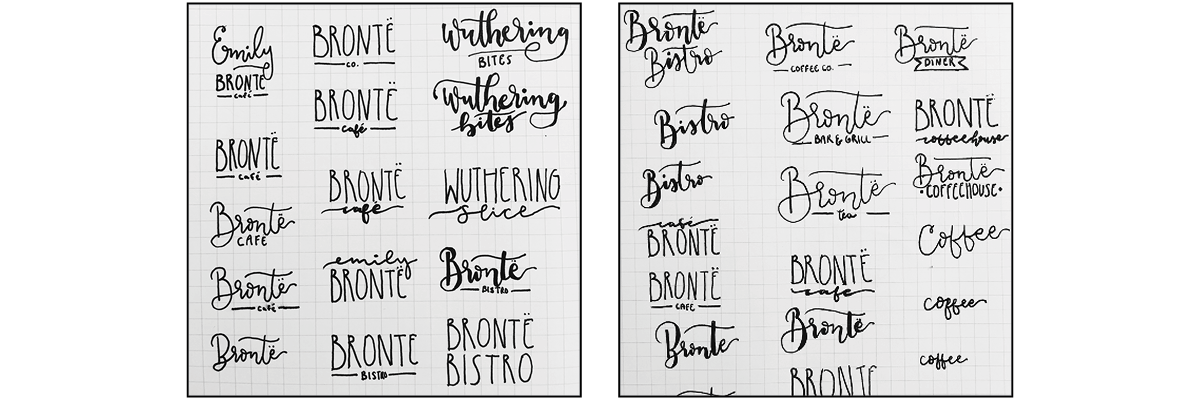 Emily
BRONTË
café
BRONTË
CAFÉ
Brontë
CAFÉ
Brontë
CAFÉ
Brontë
BRONTË
CO.
BRONTË
café
BRONTË
café
emily
BRONTË
BRONTË
BISTRO
Wuthering
BITES
Wuthering
bites
WUTHERING
slice
Brontë
BISTRO
BRONTË
BISTRO
Brontë
Bistro
Bistro
Bistro
café
BRONTË
BRONTË
CAFÉ
Bronte
Brontë
COFFEE CO.
Brontë
BAR & GRILL
Brontë
tea
BRONTË
cafe
Brontë
BRONTË
Brontë
DINER
BRONTË
coffeehouse
Brontë
•COFFEEHOUSE•
Coffee
coffee
coffee